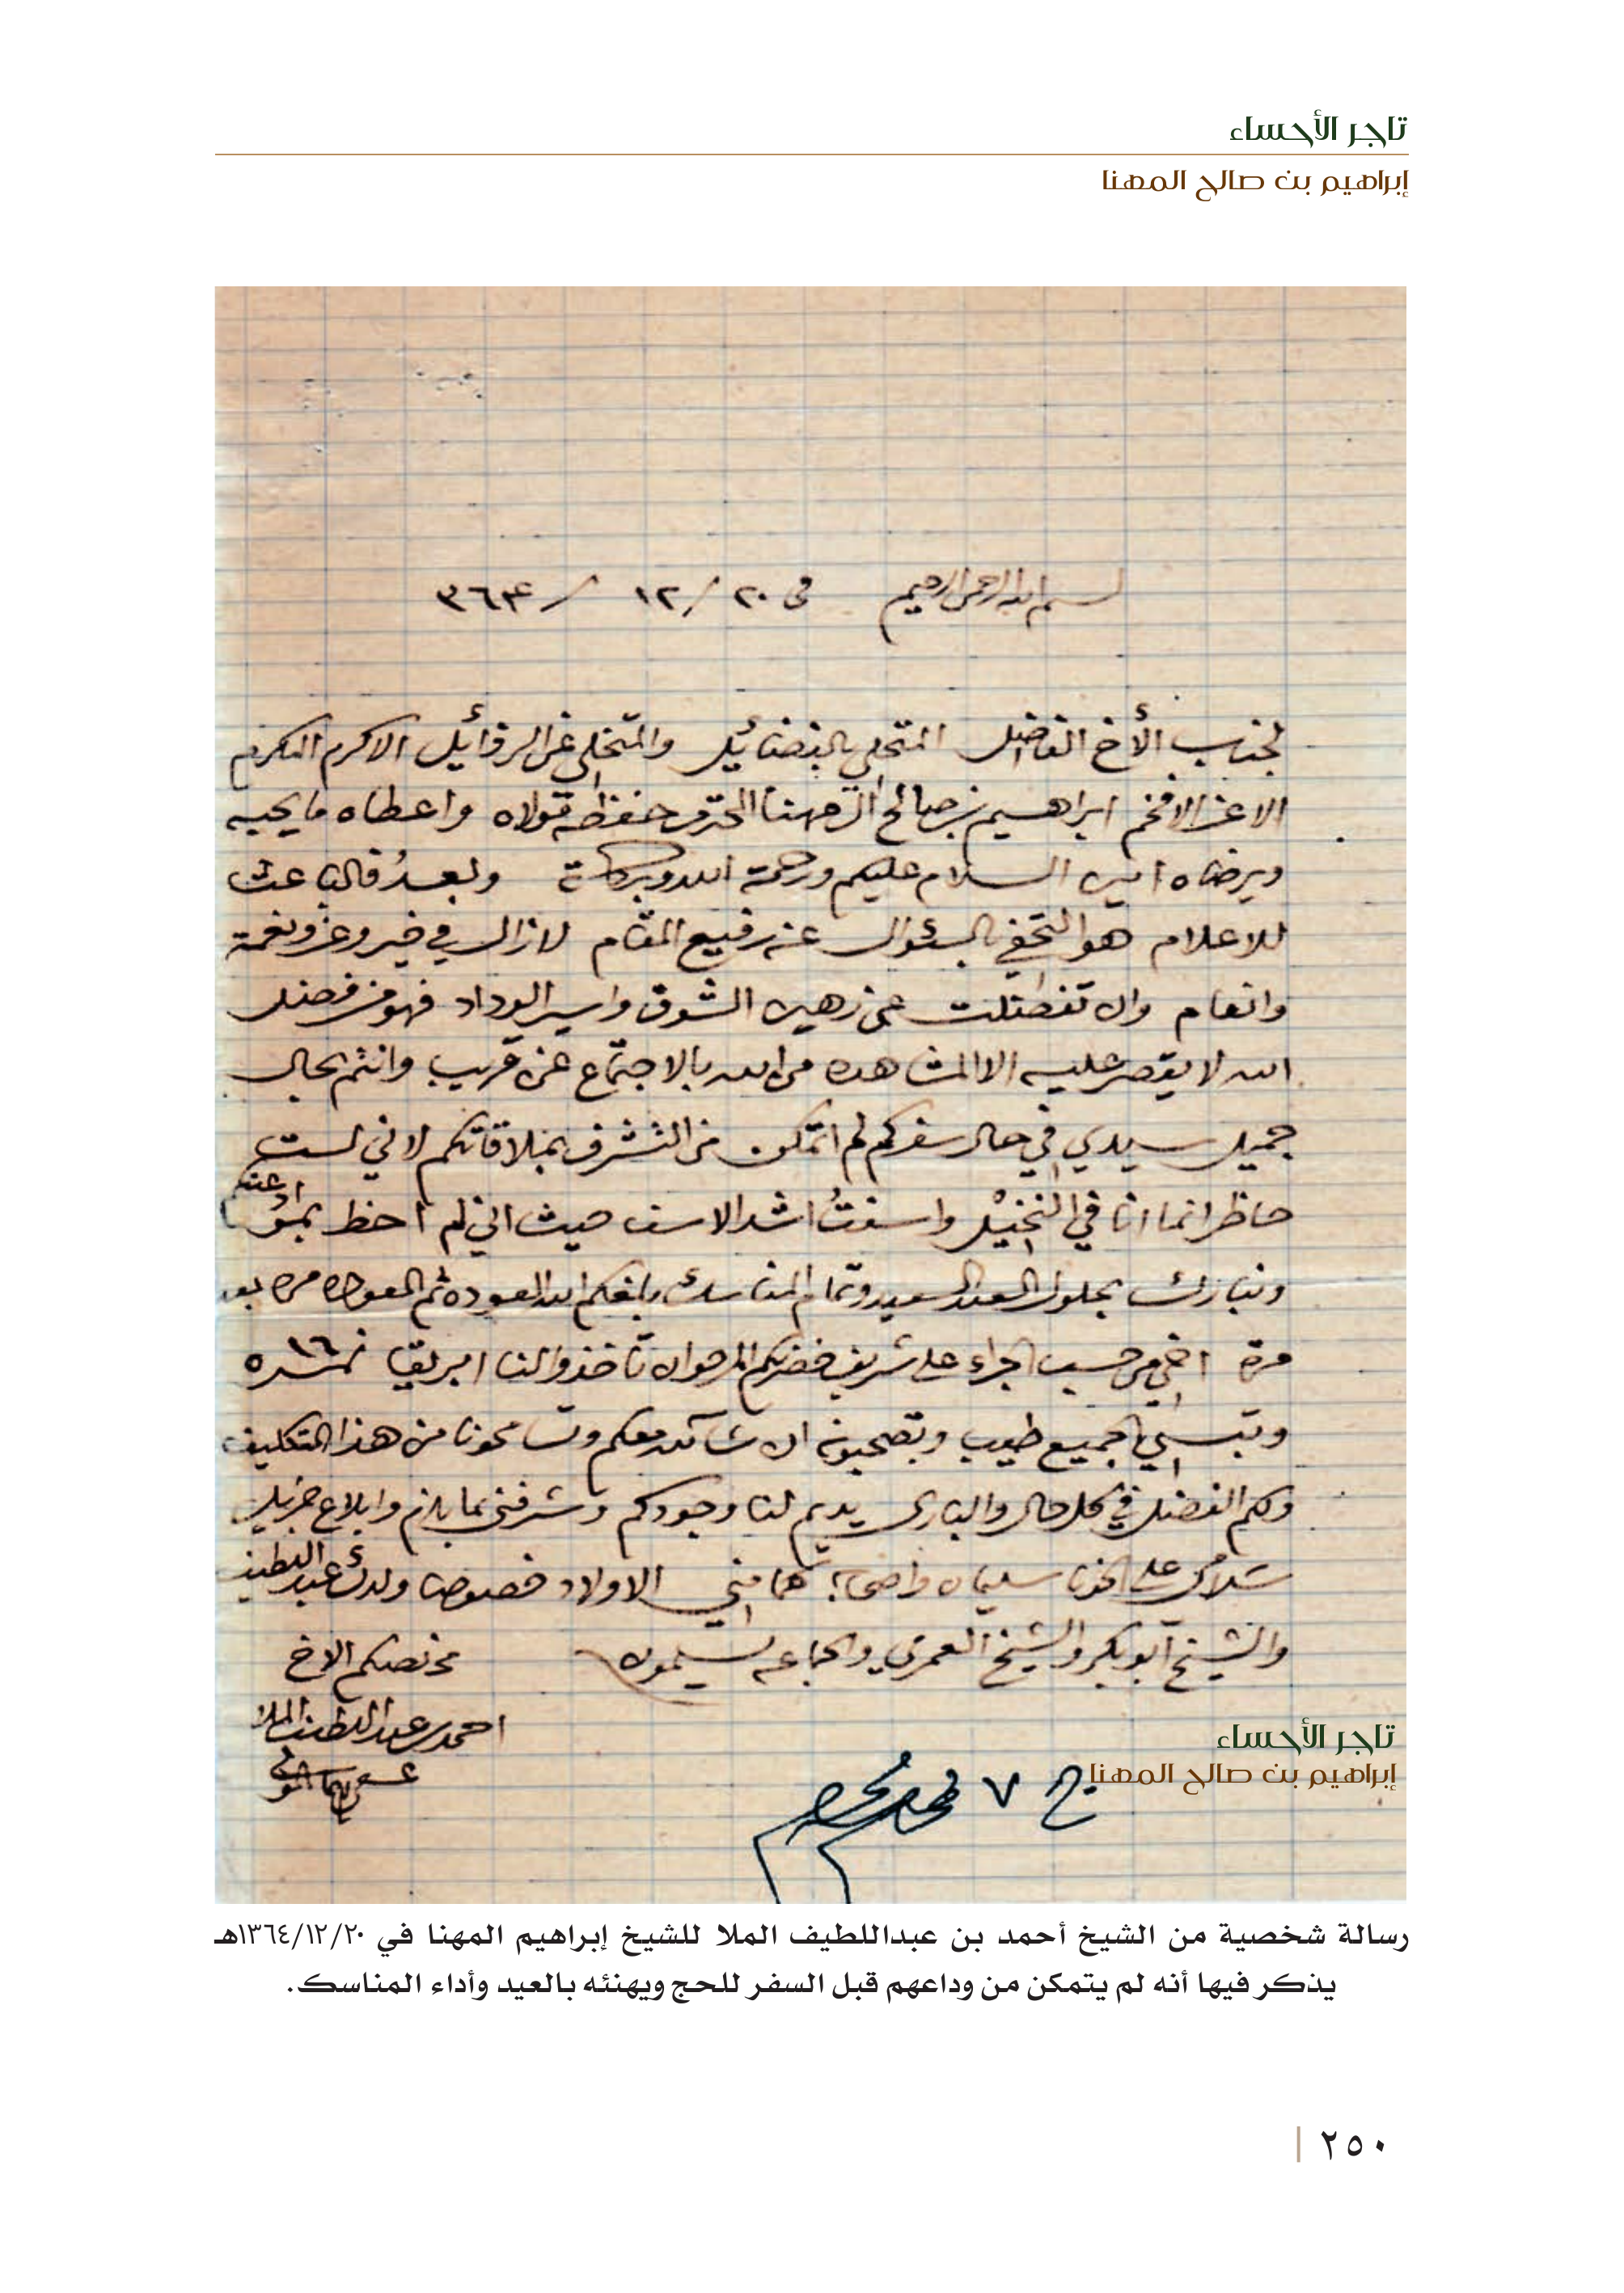 تاجر الأحساء
إبراهيم بن صالح المهنا
بسم الله الرحمن الرحيم في ٢٠ / ١٢ / ٣٦٤
لجناب الأخ الفاضل المتحلي بالفضائيل والمتخلي عن الرذأيل الاكرم المكرم
الاعز الافخم ابراهيم بن صالح ال مهنا المحترم حفظه مولاه واعطاه ما يحبه
ويرضاه امين السلام عليكم ورحمة الله وبركاته وبعدُ فالباعث
للاعلام هو التحفي بالسئوال عن رفيع المقام لازال في خير وعز ونعمة
وانعام وان تفضلت عن رهين الشوق واسير الوداد فهو من فضل
الله لا يقصر عليه الا المشاهده من الله بالاجتماع عن قريب وانتم بحال
جميل سيدي في حال سفركم لم اتمكن من التشرف بملاقاتكم لاني لست
حاظر انما انا في النخيل واسفتُ اشد الاسف حيث اني لم احظ بموادعتكم
ونبارك بحلول العيد السعيد وتمام المناسك بلغكم الله العوده ثم العوده مره بعد
مرة اخي من حسب الجراء على شريف حضرتكم المرجو ان تاخذوا لنا ابريقا نمره ١٦
الجميع طيب وتصحبونه ان شاء الله معكم وتسامحونا من هذا التكليف
ولكم الفضل في كل حال والباري يديم لنا وجودكم وشرفني بما يلزم وابلاغ جزيل
سلامي على اخونا سليمان كما مني الاولاد خصوصا ولدك عبداللطيف
والشيخ ابوبكر والشيخ العمري والجماعه يسلمون مخلصكم الاخ
احمد بن عبداللطيف الملا
تاجر الأحساء
إبراهيم بن صالح المهنا
ج ٧ محرم
رسالة شخصية من الشيخ أحمد بن عبداللطيف الملا للشيخ إبراهيم المهنا في ١٣٦٤/١٢/٢٠هـ
يذكر فيها أنه لم يتمكن من وداعهم قبل السفر للحج ويهنئه بالعيد وأداء المناسك.
٢٥٠